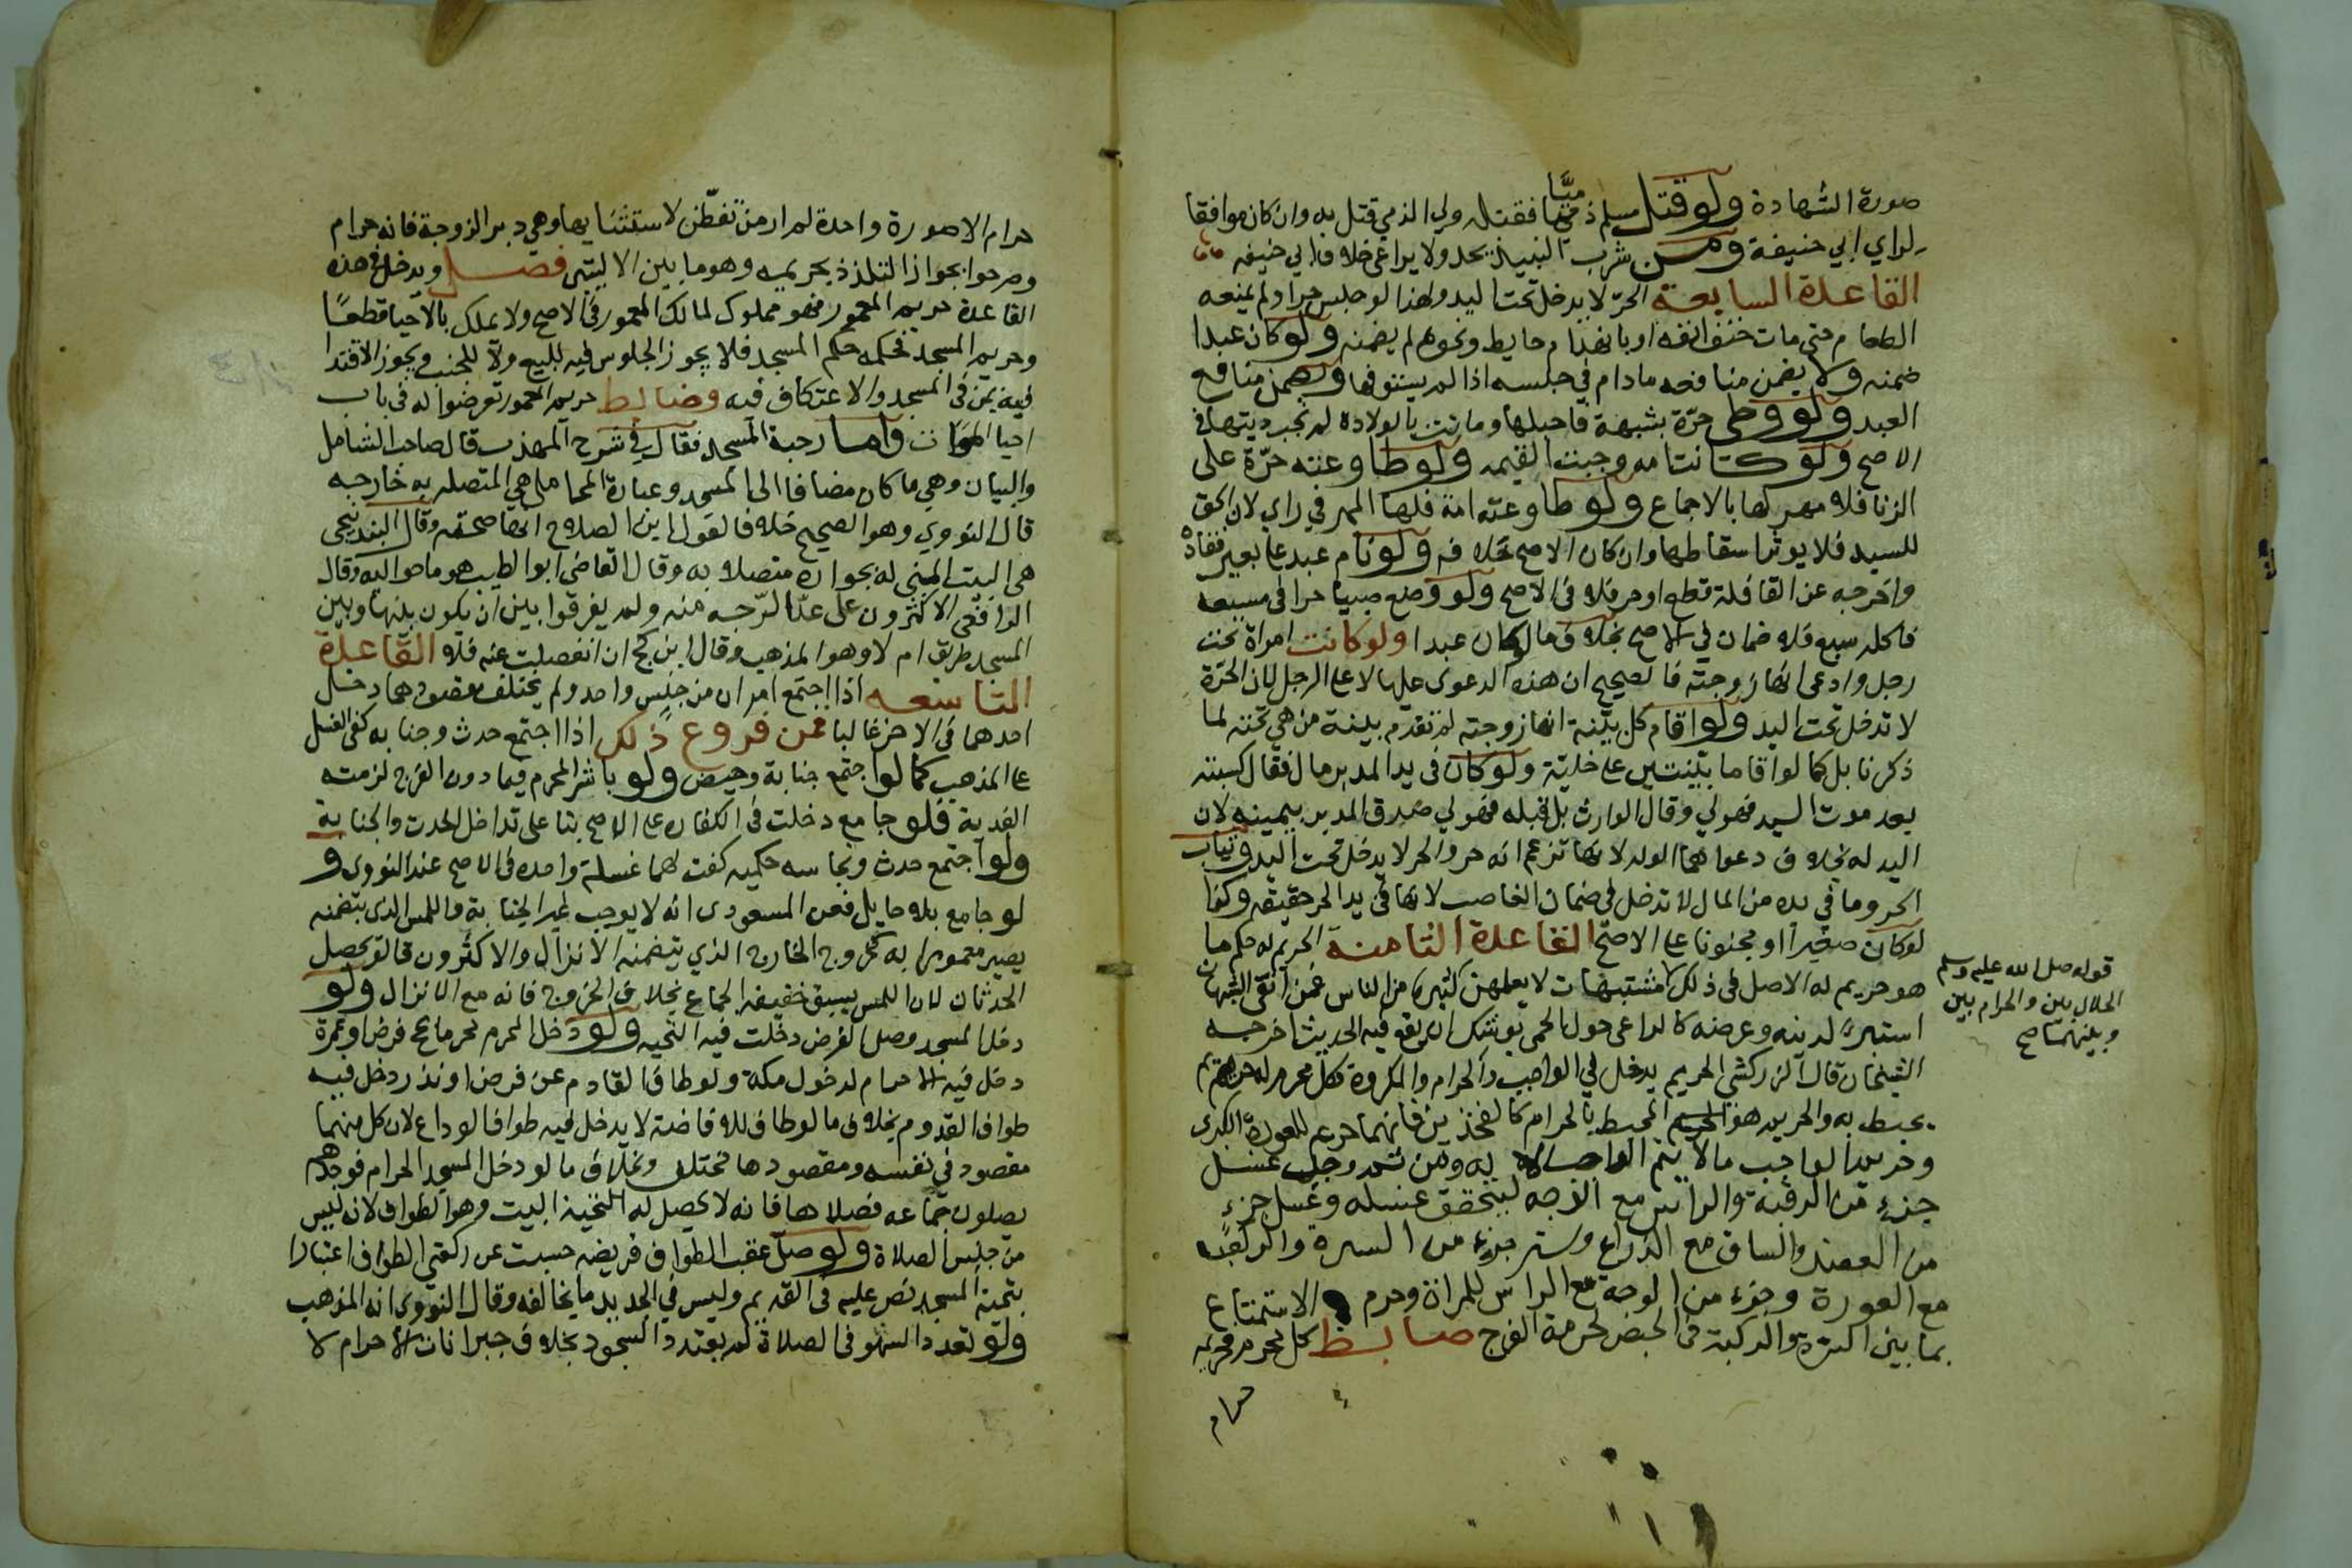 صورة الشهادة ولو قتل مسلم ذميا فقتله ولي الذمي قتل به وان كان موافقا
لراي ابي حنيفة ومن شرب النبيذ يحد ولا يراعى خلاف ابي حنيفه
القاعدة السابعة الحر لا يدخل تحت اليد ولهذا لو حبس حرا ولم يمنعه
الطعام حتى مات حتف انفه او بانهدام حايط ونحوهم لم يضمنه ولو كان عبدا
ضمنه ولا يضمن منافعه مادام في حبسه اذا لم يستوفها ويضمن منافع
العبد ولو وطى حرة بشبهة فاحبلها وماتت بالولادة لم تجب ديتها في
الاصح ولو كانت امه وجبت القيمه ولو طاوعته حرة على
الزنا فلا مهر لها بالاجماع ولو طاوعته امة فلها المهر في راي لان الحق
للسيد فلا يوثر اسقاطها وان كان الاصح خلافه ولو نام عبد على بعير فقاده
واخرجه عن القافلة قطع او حر فلا في الاصح ولو وضع صبيا حرا في مسبعه
فاكله سبع فلا ضمان في الاصح بخلاف ما لو كان عبدا ولو كانت امراة تحت
رجل وادعى انها زوجته فالصحيح ان هذه الدعوى عليها لا على الرجل لان الحرة
لا تدخل تحت اليد ولو اقام كل بينة انها زوجته لم تقدم بينة من هي تحته لما
ذكرنا بل كما لو اقاما بينتين على خلية ولو كان في يد المدبر مال فقال كسبته
بعد موت السيد فهو لي وقال الوارث بل قبله فهو لي صدق المدبر بيمينه لان
اليد له بخلاف دعواهما الولد لانها تزعم انه حر والحر لا يدخل تحت اليد وثياب
الحر وما في يده من المال لا تدخل في ضمان الغاصب لانها في يد الحر حقيقه وكذا
لو كان صغيرا او مجنونا على الاصح القاعدة الثامنة الحريم له حكم ما
هو حريم له الاصل في ذلك مشتبهات لا يعلمهن كثير من الناس فمن اتقى الشبهات
استبرا لدينه وعرضه كالراعي حول الحمى يوشك ان يقع فيه الحديث اخرجه
الشيخان قال الزركشي الحريم يدخل في الواجب والحرام والمكروه فكل محرم له حريم
يحيط به والحريم هو المحيط بالحرام كالفخذين فانهما حريم للعورة الكبرى
وحريم الواجب ما لا يتم الواجب الا به ومن ثم وجب غسل
جزء من الرقبة والراس مع الوجه ليتحقق غسله وغسل جزء
من العضد والساق مع الذراع وستر جزء من السرة والركبة
مع العورة وجزء من الوجه مع الراس للمراة وحرم الاستمتاع
بما بين السرة والركبة في الحيض لحرمة الفرج ضابط كل محرم فحريمه
حرام
قوله صلى الله عليه وسلم
الحلال بين والحرام بين
وبينهما صح
حرام الا صورة واحدة لم ار من تفطن لاستثنايها وهي دبر الزوجة فانه حرام
وصرحوا بجواز التلذذ بحريمه وهو ما بين الاليتين فصل ويدخل في هذه
القاعدة حريم المعمور فهو مملوك لمالك المعمور في الاصح ولا يملك بالاحيا قطعًا
وحريم المسجد فحكمه حكم المسجد فلا يجوز الجلوس فيه للبيع ولا للجنب ويجوز الاقتدا
فيه بمن في المسجد والاعتكاف فيه وضابط حريم المعمور تعرضوا له في باب
احيا الموات واما رحبة المسجد فقال في شرح المهذب قال صاحب الشامل
والبيان وهي ما كان مضافا الى المسجد وعبارة المحاملي هي المتصله به خارجه
قال النووي وهو الصحيح خلافا لقول ابن الصلاح انها صحنه وقال البندنيجي
هي البيت المبني له بجواره متصلا به وقال القاضي ابو الطيب هو ما حواليه وقال
الرافعي الاكثرون على عد الرحبه منه ولم يفرقوا بين ان يكون بينها وبين
المسجد طريق ام لا وهو المذهب وقال ابن كج ان انفصلت عنه فلا القاعدة
التاسعه اذا اجتمع امران من جنس واحد ولم يختلف مقصودهما دخل
احدهما في الاخر غالبا فمن فروع ذلك اذا اجتمع حدث وجنابه كفى الغسل
على المذهب كما لو اجتمع جنابة وحيض ولو باشر المحرم فيما دون الفرج لزمته
الفدية فلو جامع دخلت في الكفاره على الاصح بنا على تداخل الحدث والجنابة
ولو اجتمع حدث ونجاسه حكميه كفت لهما غسلة واحده في الاصح عند النووي و
لو جامع بلا حايل فعن المسعودي انه لا يوجب غير الجنابة واللمس الذي يتضمنه
يصير مغمورا به كخروج الخارج الذي يتضمنه الانزال والاكثرون قالوا يحصل
الحدثان لان اللمس يسبق حقيقة الجماع بخلاف الخروج فانه مع الانزال ولو
دخل المسجد وصلى الفرض دخلت فيه التحيه ولو دخل الحرم محرما بحج فرض او عمرة
دخل فيه الاحرام لدخول مكة ولو طاف القادم عن فرض او نذر دخل فيه
طواف القدوم بخلاف ما لو طاف للافاضة لا يدخل فيه طواف الوداع لان كل منهما
مقصود في نفسه ومقصودهما مختلف وبخلاف ما لو دخل المسجد الحرام فوجدهم
يصلون جماعه فصلاها فانه لا يحصل له التحية البيت وهو الطواف لانه ليس
من جنس الصلاة ولو صلى عقب الطواف فريضه حسبت عن ركعتي الطواف اعتبارا
بتحية المسجد نص عليه في القديم وليس في الجديد ما يخالفه وقال النووي انه المذهب
ولو تعدد السهو في الصلاة لم يتعدد السجود بخلاف جبرانات الاحرام لا